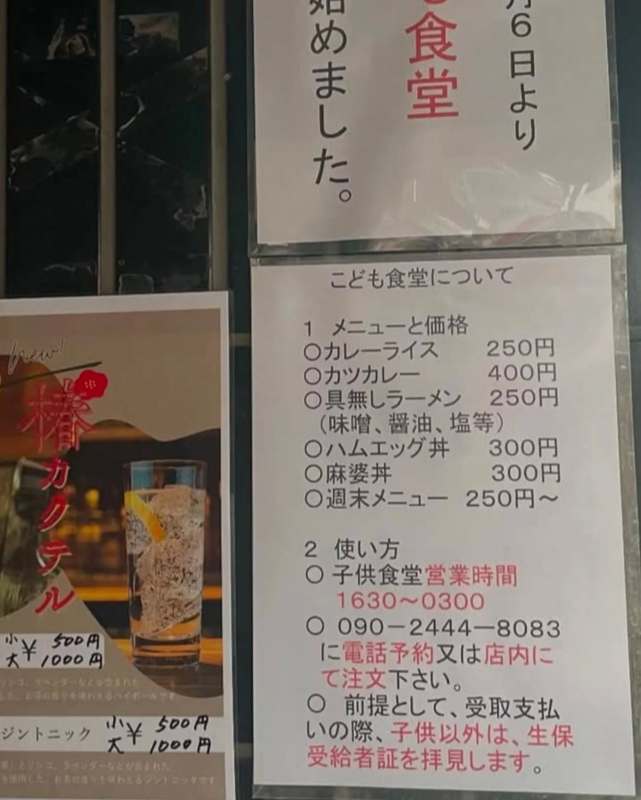 月6日より
食堂
始めました。
こども食堂について
1 メニューと価格
○カレーライス 250円
○カツカレー 400円
○具無しラーメン 250円
(味噌、醤油、塩等)
○ハムエッグ丼 300円
○麻婆丼 300円
○週末メニュー 250円〜
2 使い方
○ 子供食堂営業時間
1630〜0300
○ 090-2444-8083
に電話予約又は店内に
て注文下さい。
○ 前提として、受取支払
いの際、子供以外は、生保
受給者証を拝見します。
new!
椿カクテル
小 ¥ 500円
大 1000円
ジントニック 小 ¥ 500円
大 1000円